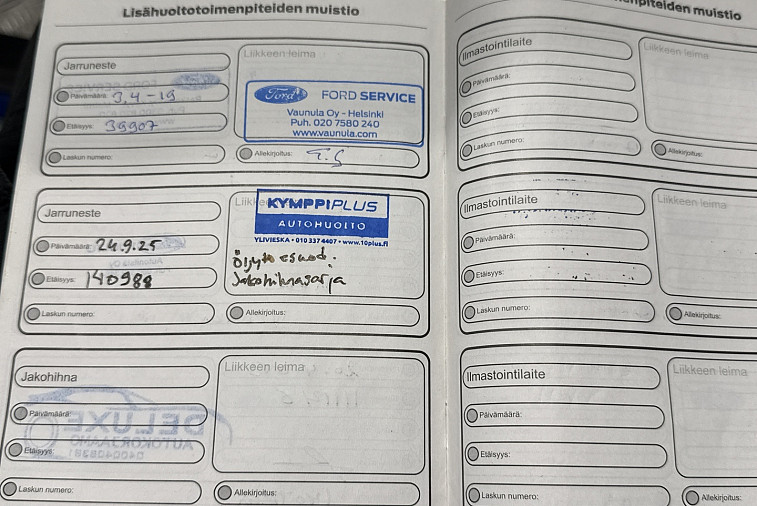 Lisähuoltotoimenpiteiden muistio
Jarruneste
Päivämäärä: 3.4-19
Etäisyys: 39907
Laskun numero:
Liikkeen leima
Ford FORD SERVICE
Vaunula Oy - Helsinki
Puh. 020 7580 240
www.vaunula.com
Allekirjoitus:
Jarruneste
Päivämäärä: 24.9.25
Etäisyys: 140988
Laskun numero:
KYMPPIPLUS
AUTOHUOLTO
YLIVIESKA • 010 337 4407 • www.10plus.fi
Jakohihnasarja
Allekirjoitus:
Jakohihna
Päivämäärä:
Etäisyys:
Laskun numero:
Liikkeen leima
Allekirjoitus:
DELUXE
AUTOKORJAAMO
npiteiden muistio
Ilmastointilaite
Päivämäärä:
Etäisyys:
Laskun numero:
Liikkeen leima
Allekirjoitus:
Ilmastointilaite
Päivämäärä:
Etäisyys:
Laskun numero:
Liikkeen leima
Allekirjoitus:
Ilmastointilaite
Päivämäärä:
Etäisyys:
Laskun numero:
Liikkeen leima
Allekirjoitus: